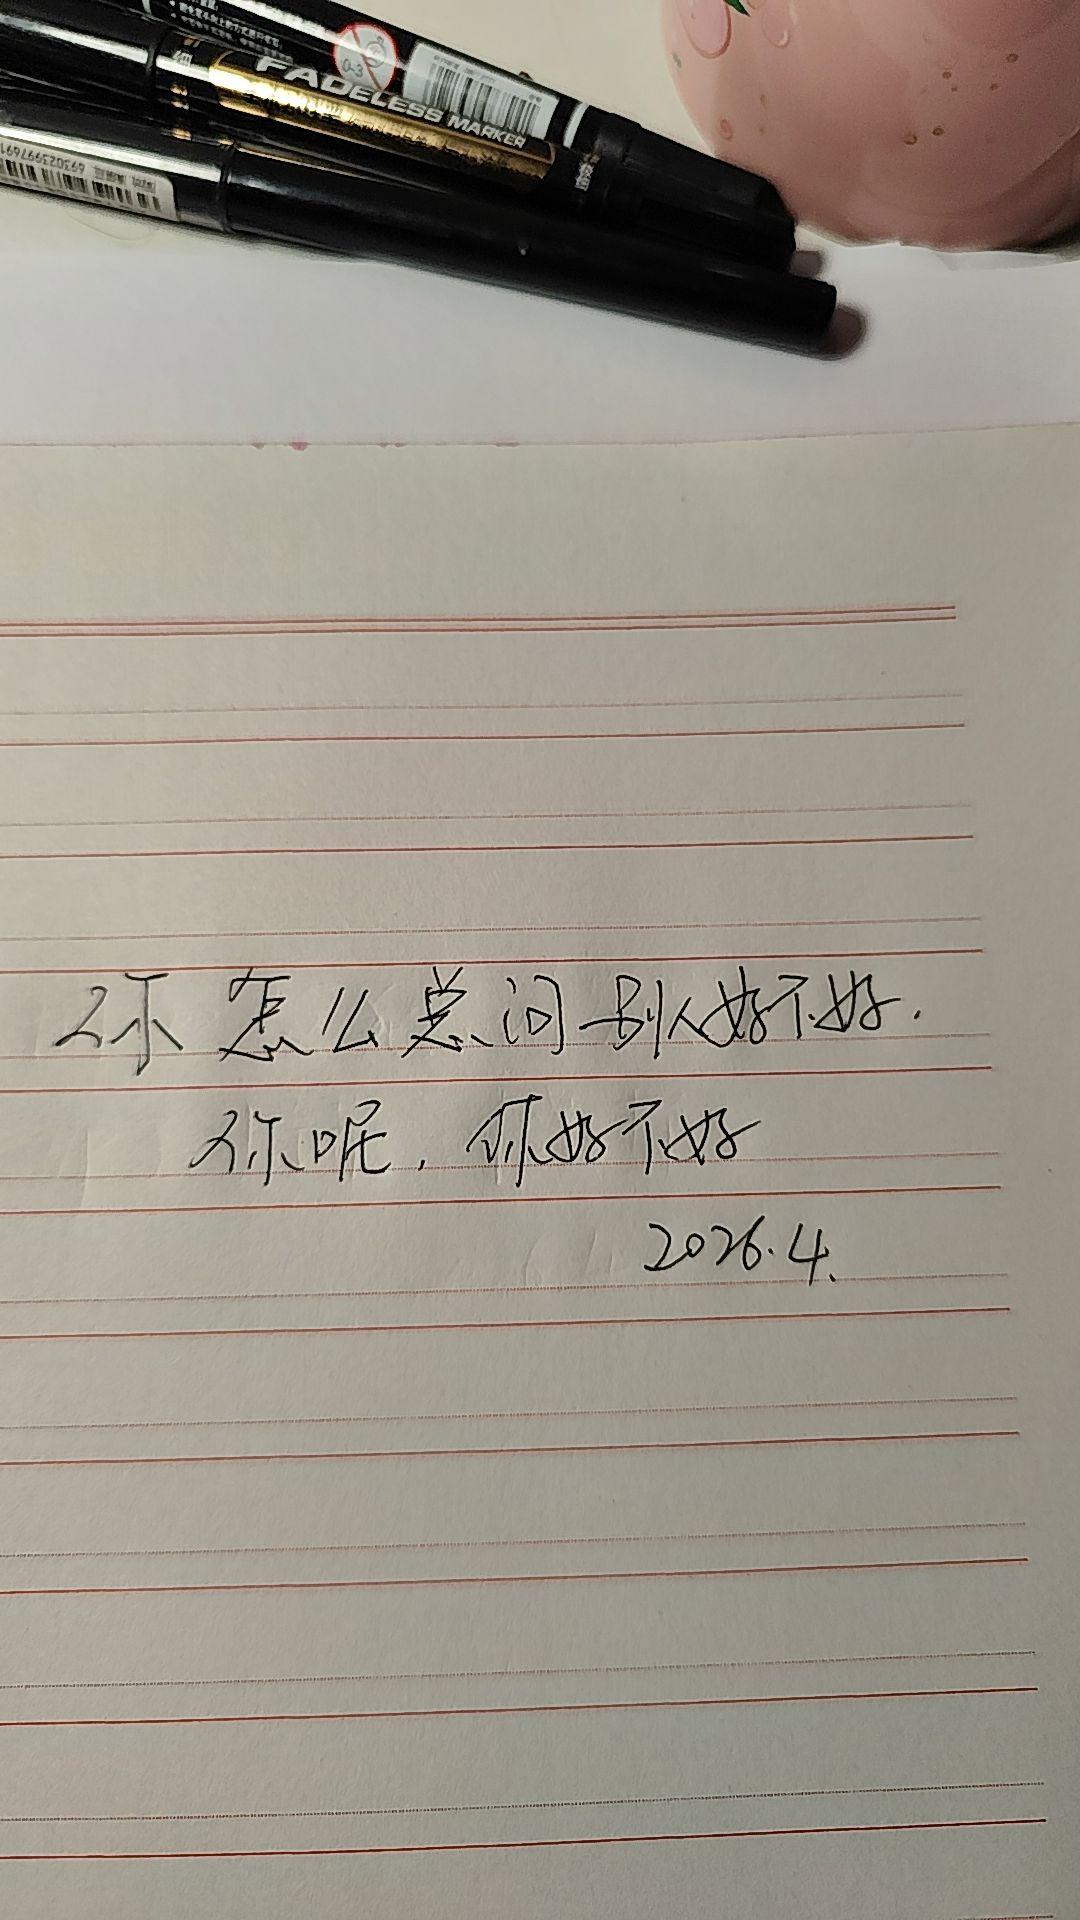 0-3
FADELESS MARKER
你怎么总问别人好不好.
你呢,你好不好
2026.4.